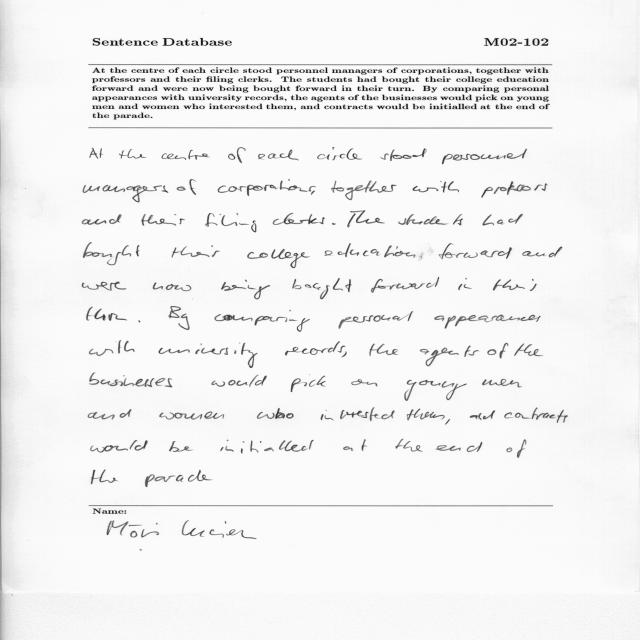 Sentence Database M02-102
At the centre of each circle stood personnel managers of corporations, together with
professors and their filing clerks. The students had bought their college education
forward and were now being bought forward in their turn. By comparing personal
appearances with university records, the agents of the businesses would pick on young
men and women who interested them, and contracts would be initialled at the end of
the parade.
At the centre of each circle stood personnel
managers of corporations, together with professors
and their filing clerks. The students had
bought their college education, forward and
were now being bought forward in their
turn. By comparing personal appearances
with university records, the agents of the
businesses would pick on young men
and women who interested them, and contracts
would be initialled at the end of
the parade
Name: